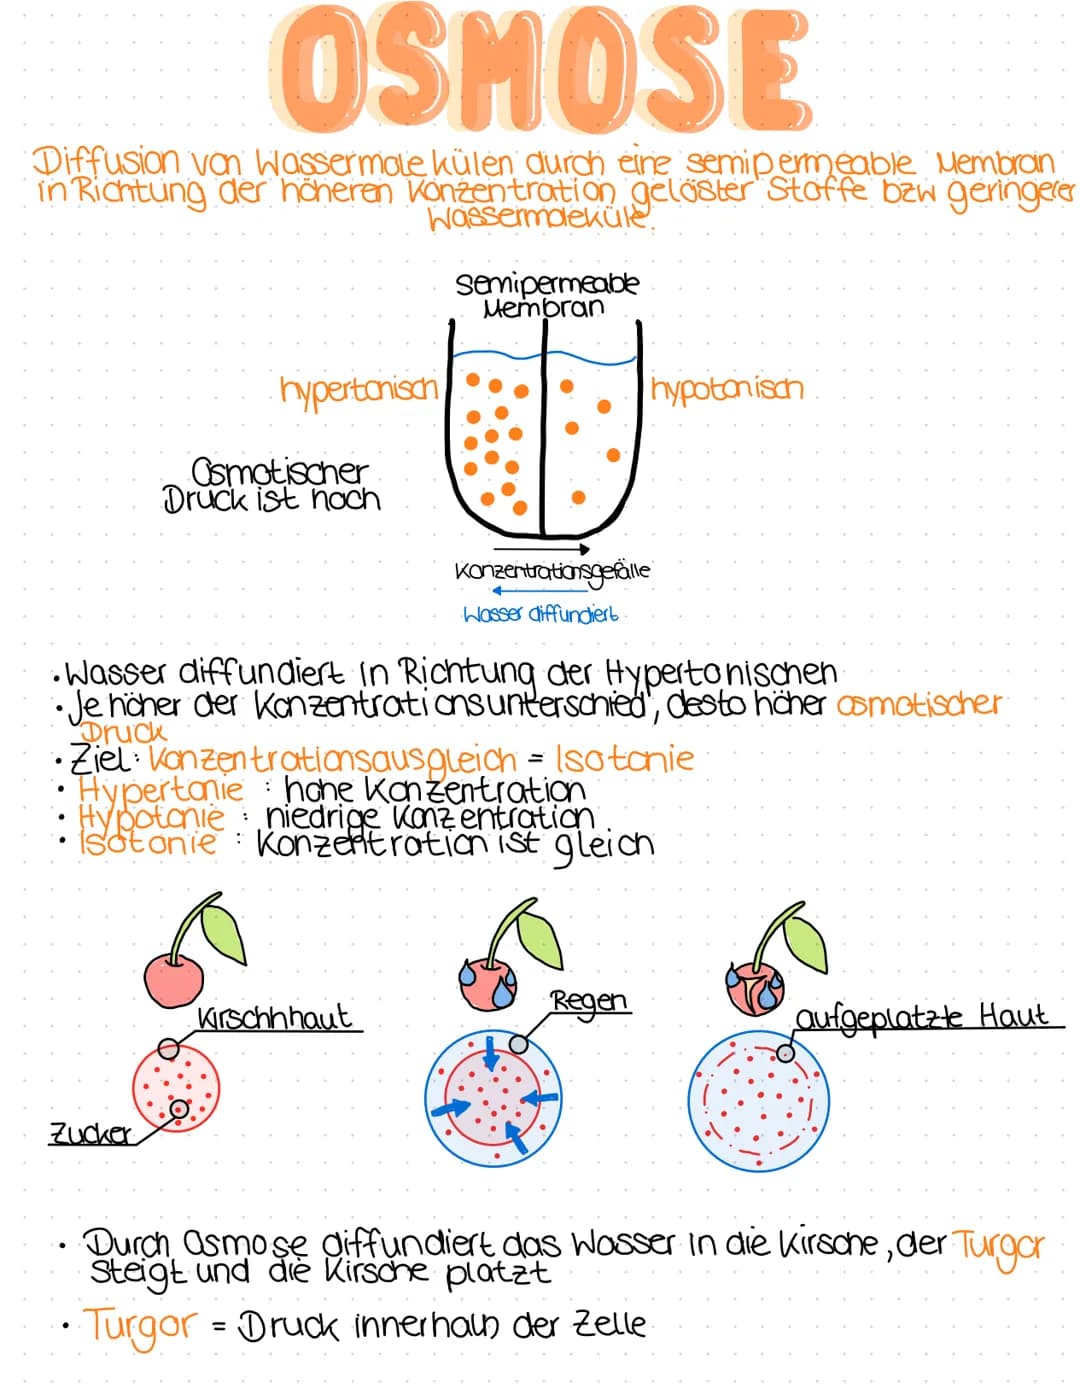 OSMOSE
Diffusion von Wassermolekülen durch eine semipermeable Membran
in Richtung der höheren Konzentration gelöster Stoffe bzw geringerer
Wassermoleküle.
Semipermeable
Membran
hypertonisch
hypotonisch
Osmotischer
Druck ist hoch
Konzentrationsgefälle
Wasser diffundiert
· Wasser diffundiert in Richtung der Hypertonischen
· Je höher der Konzentrationsunterschied, desto höher osmotischer
Druck
· Ziel: Konzentrationsausgleich = Isotonie
· Hypertonie : hohe Konzentration
· Hypotonie : niedrige Konzentration
· Isotonie : Konzentration ist gleich
Kirschhhaut
Regen
aufgeplatzte Haut
Zucker
· Durch Osmose diffundiert das Wasser in die Kirsche, der Turgor
steigt und die Kirsche platzt
· Turgor = Druck innerhalb der Zelle